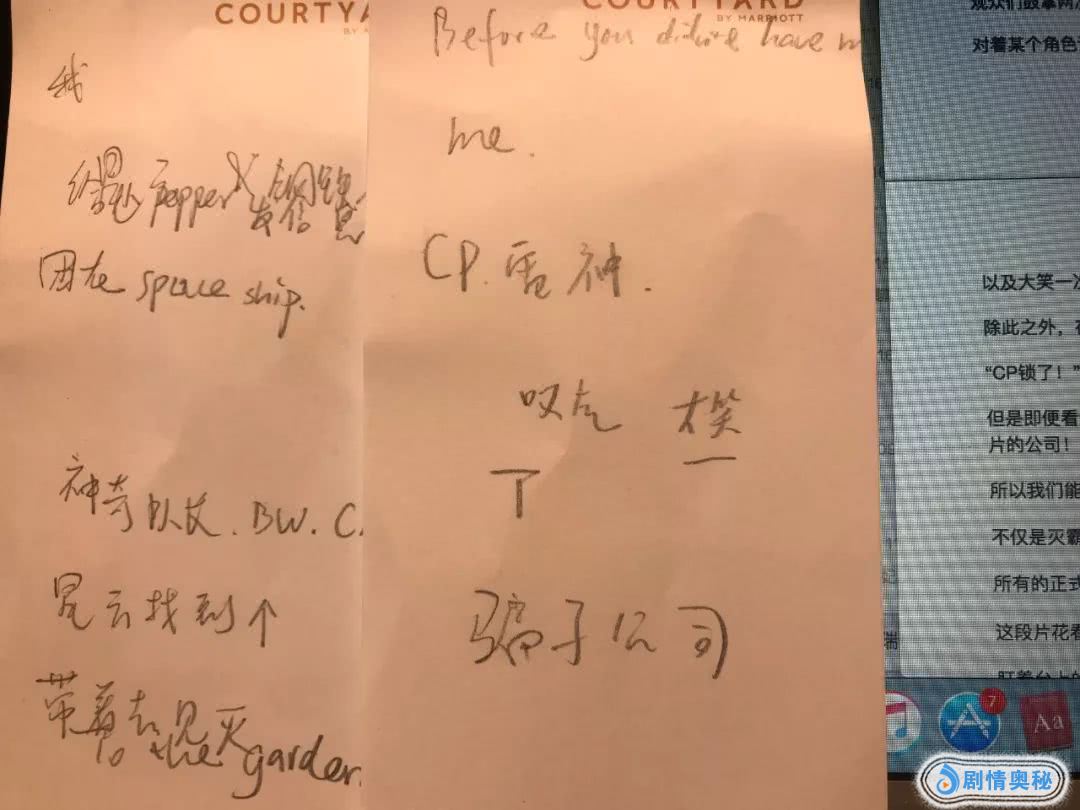 COURTYA
BY MA
我
给 Pepper 发信息
困在 space ship.
神奇队长. BW. C.
星云找到个
带着去见灭
to the garden
COURTYARD
BY MARRIOTT
Before you have
me.
CP. 雷神.
叹气 大笑
T 一
骗子公司
观众们鼓掌两
对着某个角色
以及大笑一
除此之外，
“CP锁了！”
但是即便看
片的公司！
所以我们能
不仅是灭霸
所有的正式
这段片花看
盯着台上的
7
Aa
剧情奥秘